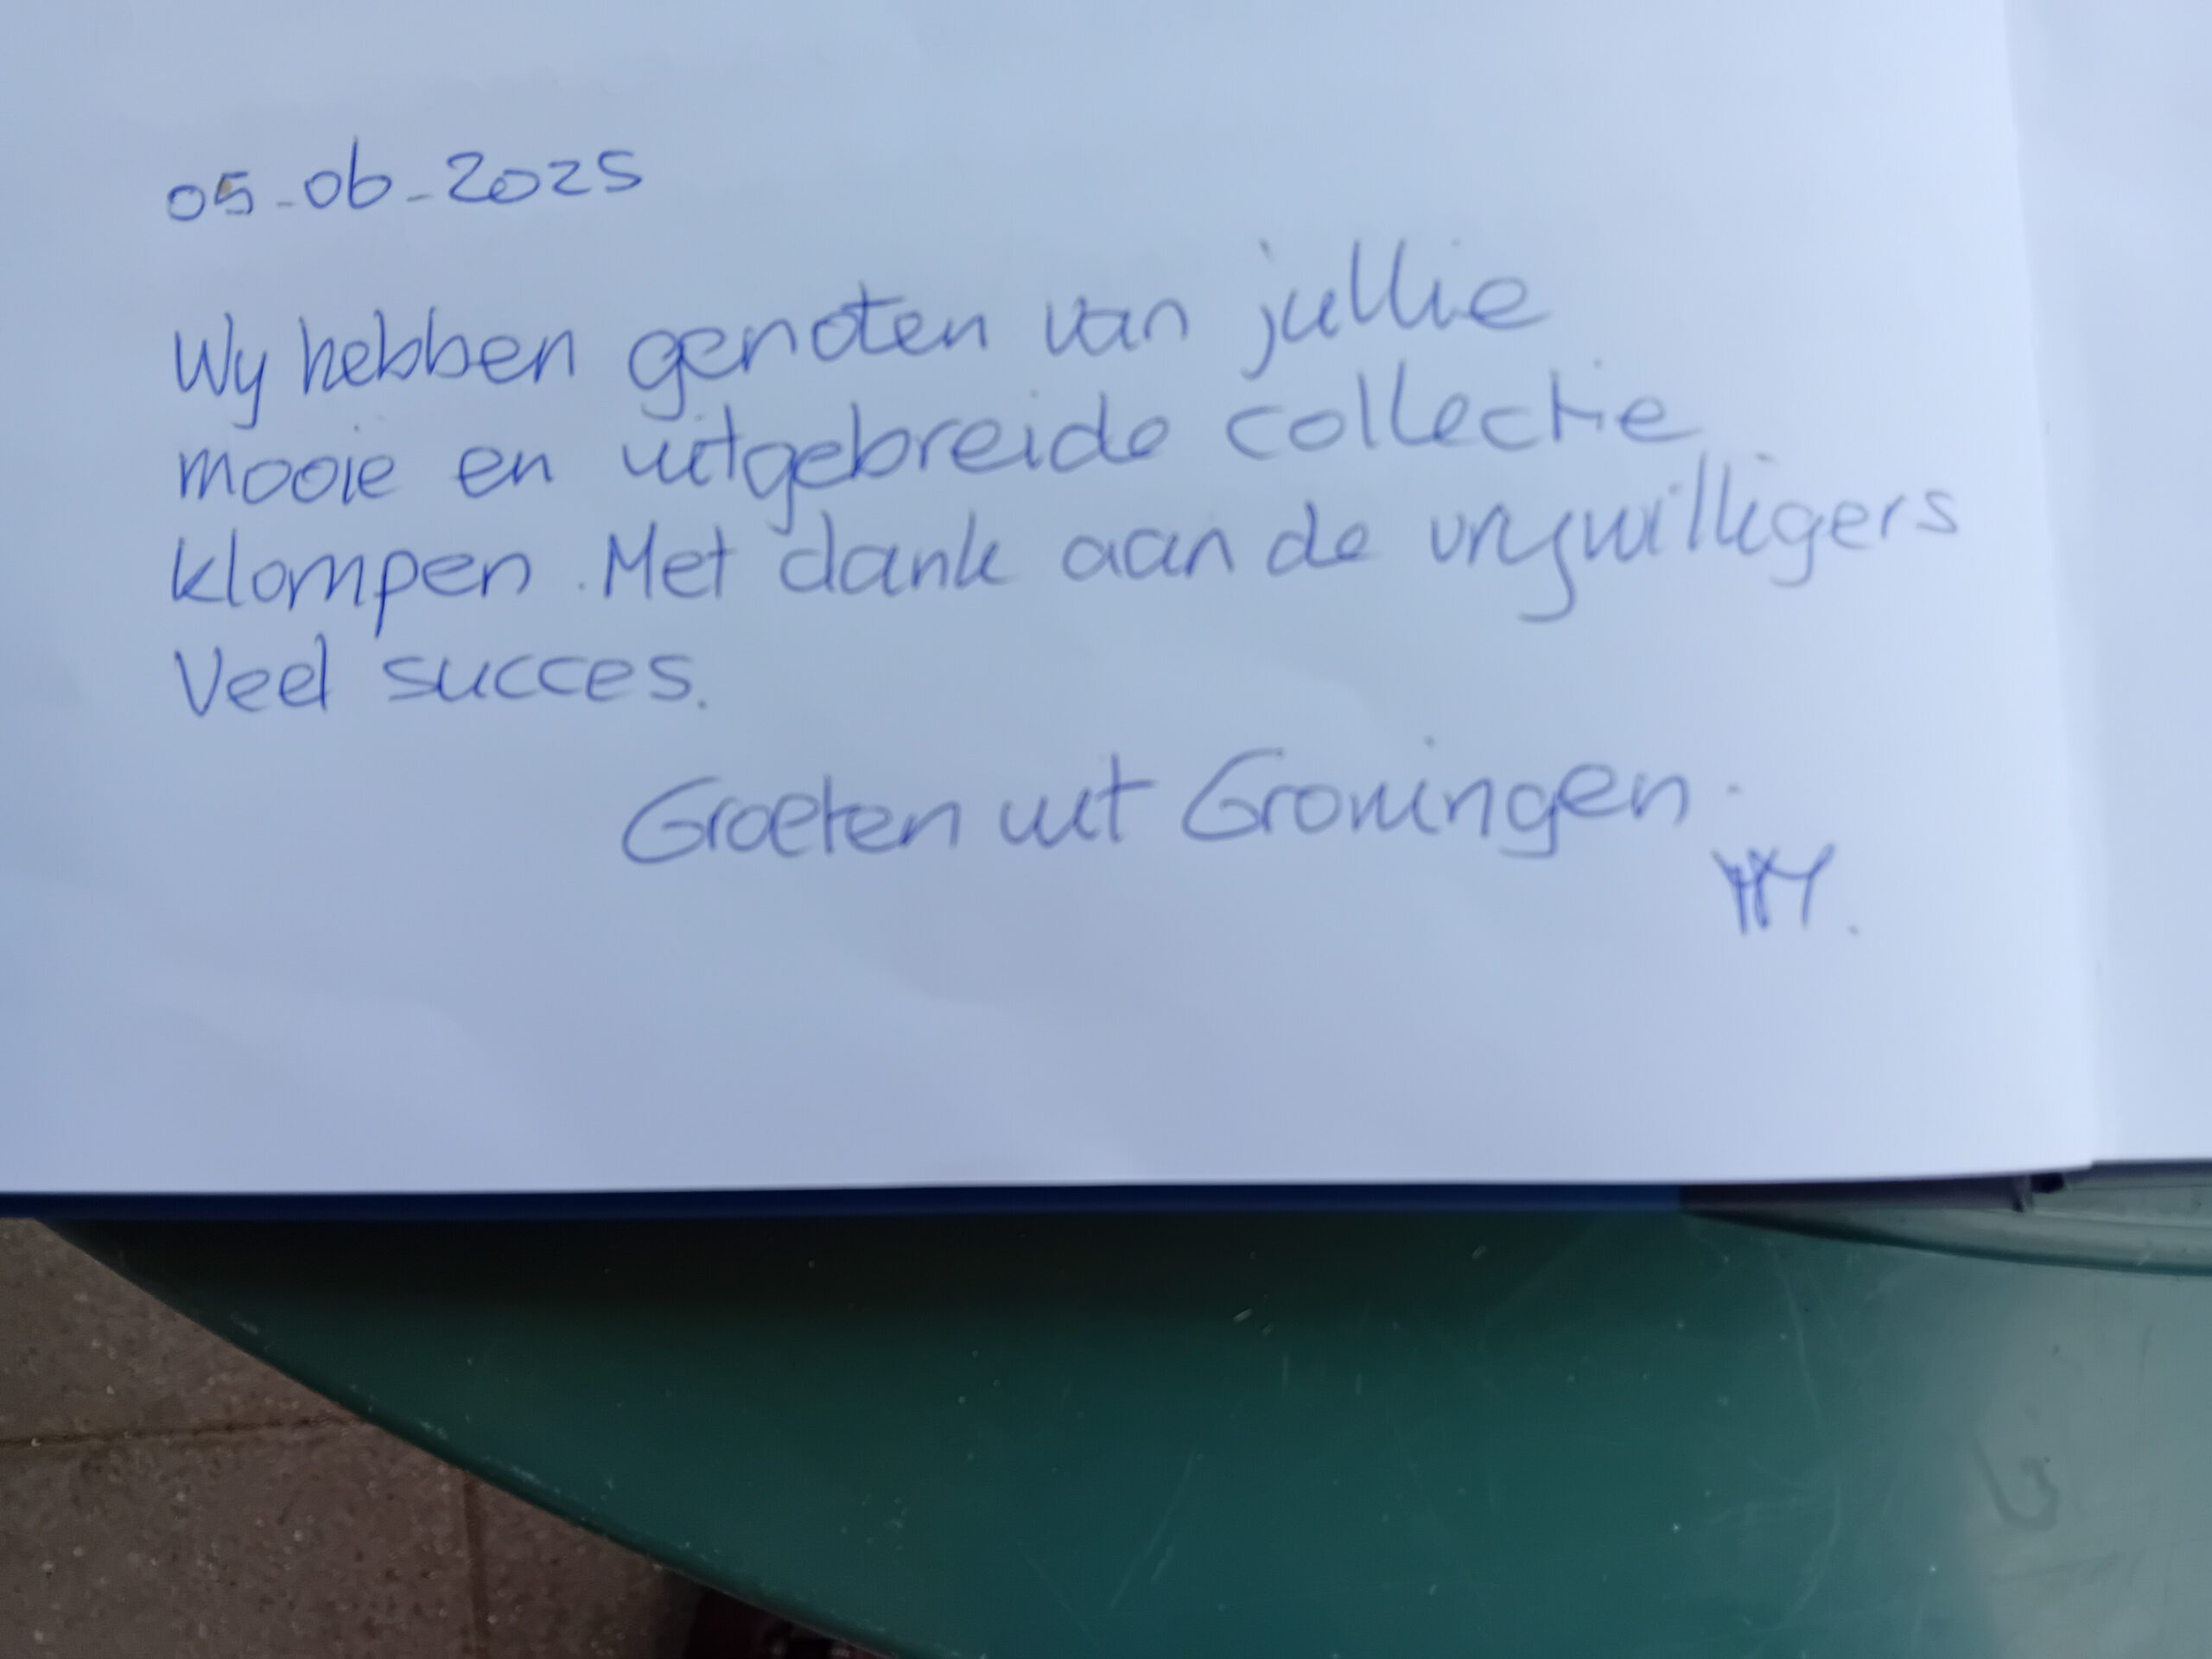 05-06-2025
Wy hebben genoten van jullie
mooie en uitgebreide collectie
klompen. Met dank aan de vrywilligers
Veel succes.
Groeten uit Groningen.